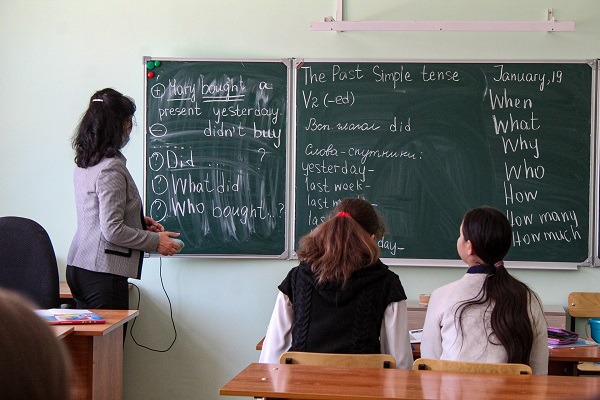 + Mary bought a
present yesterday
− didn't buy
? Did .... ?
? What did
? Who bought...?
The Past Simple tense
V2 (-ed)
Всп. глагол did
Слова-спутники:
yesterday-
last week-
last
last
day-
January, 19
When
What
Why
Who
How
How many
How much